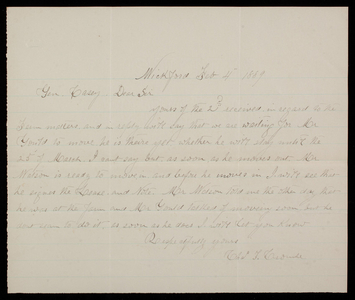 Wickford Feb 4th 1869
Gen. Casey Dear Sir
Yours of the 2d received, in regard to the
farm matters, and in reply will say that we are waiting for Mr
Gould to move, he is there yet whether he will stay until the
of March I cant say but as soon as he moves out Mr
Watson is ready to move in and before he moves in I will see that
he signs the Lease and Mr Watson told me the other day that
he was at the farm and Mr Gould talked of moving soon, but he
was to do it, as soon as he does I will let you know
Respectfully yours
Chs. T.